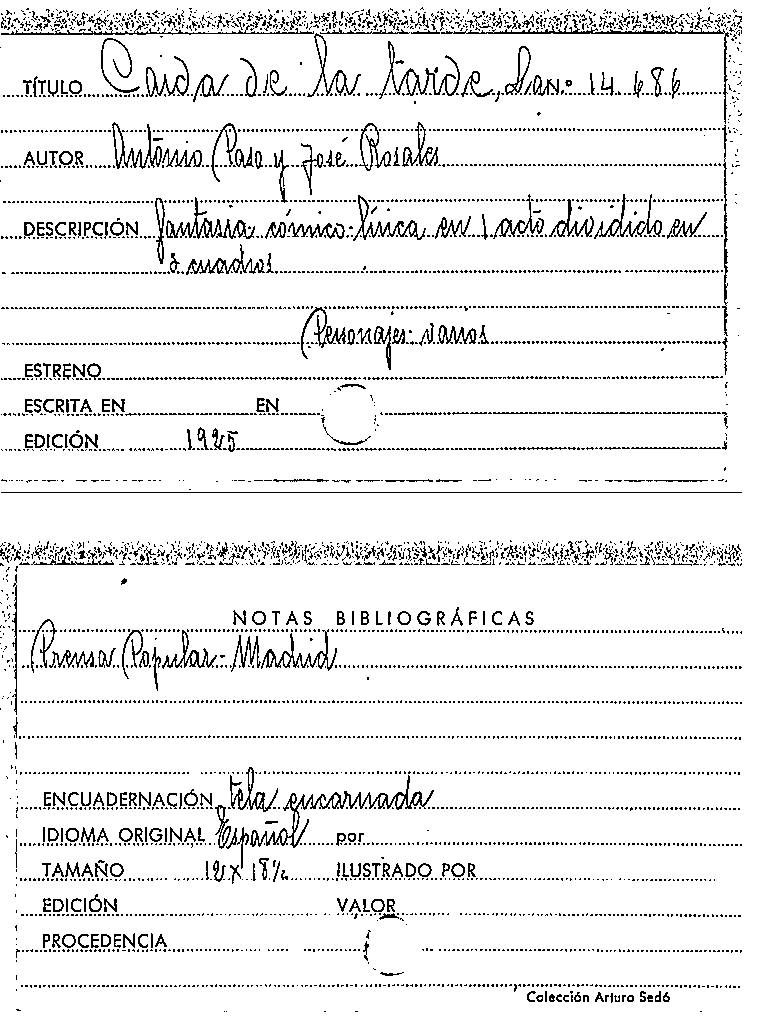 TÍTULO Caida de la tarde, La N.º 14.686
AUTOR Antonio Paso y José Rosales
DESCRIPCIÓN fantasia cómico-lírica en 1 acto dividido en
cuadros
Personajes: varios
ESTRENO
ESCRITA EN EN
EDICIÓN 1925
NOTAS BIBLIOGRÁFICAS
Prensa Popular - Madrid
ENCUADERNACIÓN tela encarnada
IDIOMA ORIGINAL Español por
TAMAÑO 12 x 18½ ILUSTRADO POR
EDICIÓN VALOR
PROCEDENCIA
Colección Arturo Sedó